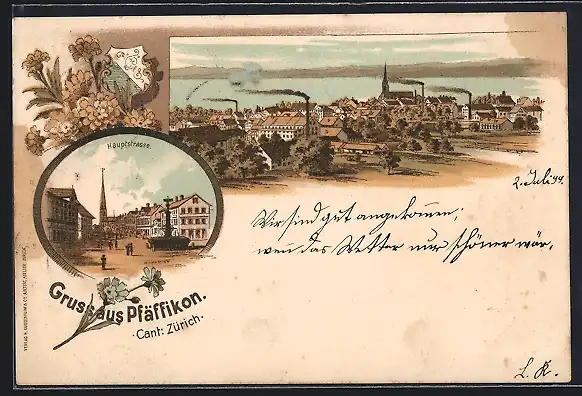 Hauptstrasse.
2. Juli 99.
Wir sind gut angekommen;
wen das Wetter nur schöner wär,
Gruss aus Pfäffikon.
Cant: Zürich.
L. K.